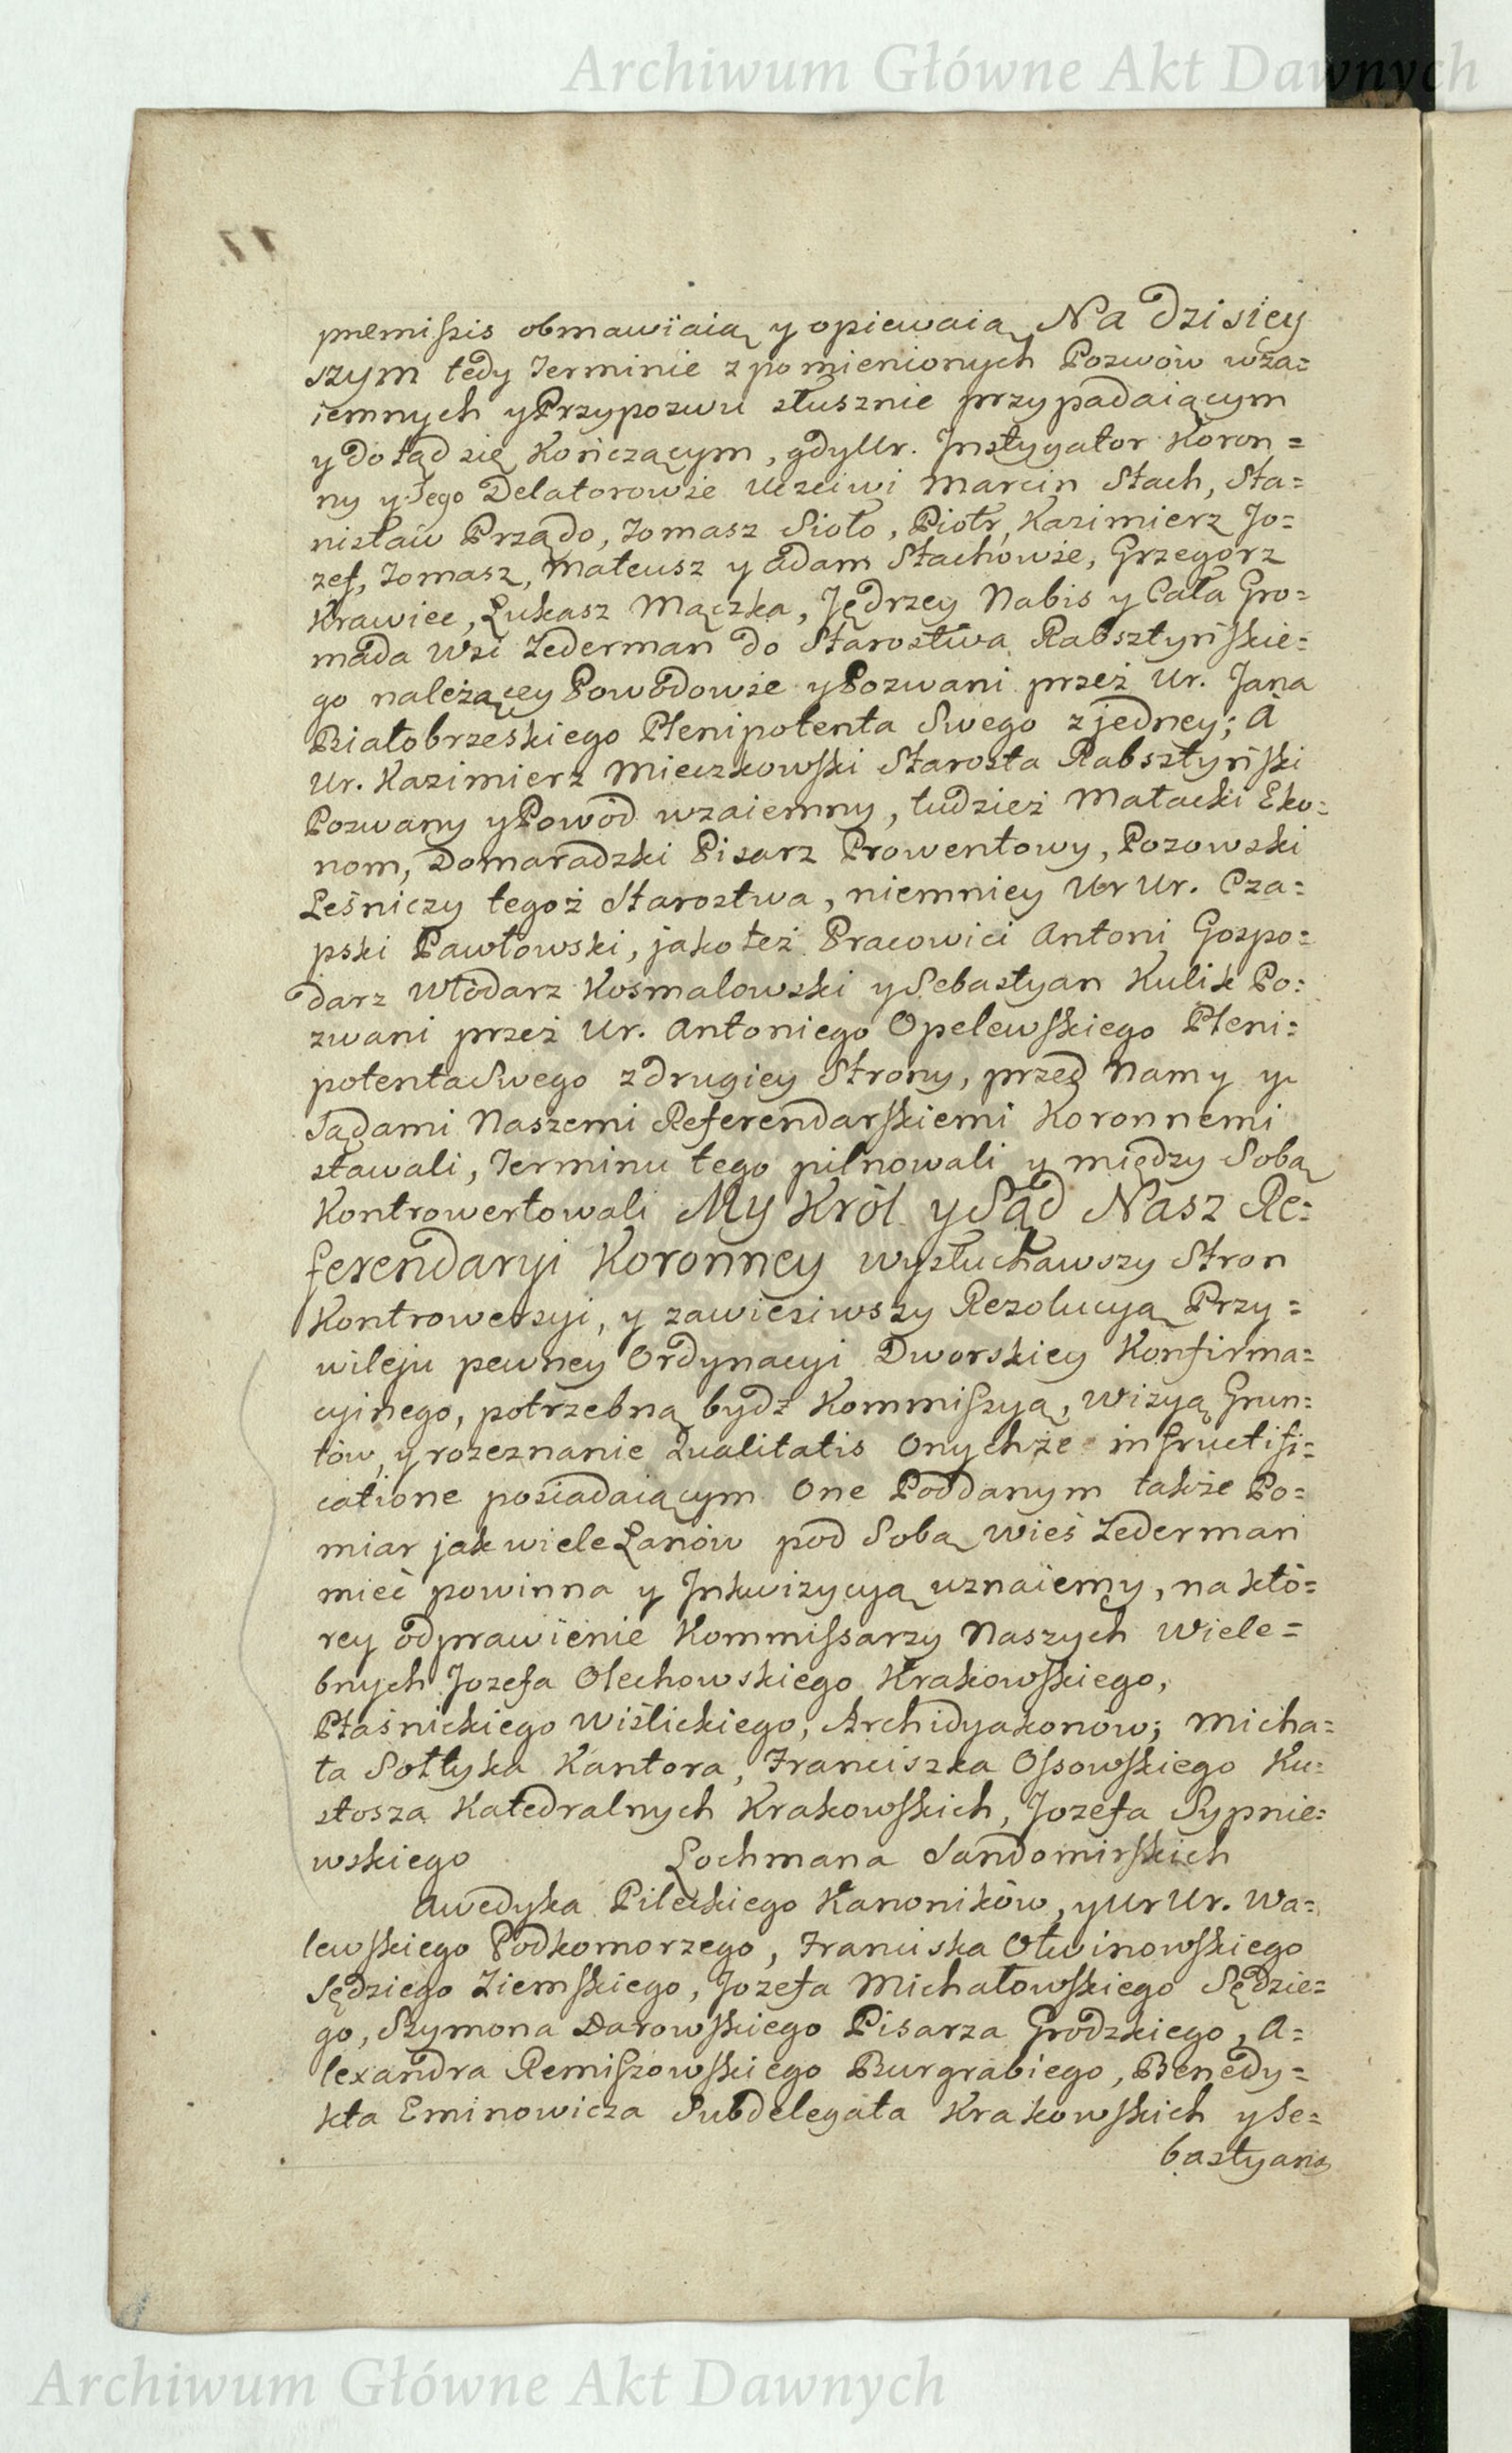 Archiwum Główne Akt Dawnych
17.
premissis obmawiaią y opiewaią Na dzisiey
szym tedy Terminie z pomienionych Pozwów wza=
iemnych y Przypozwu słusznie przypadaiącym
y dotąd się Kończącym, gdy Ur. Instygator Koron=
ny y Jego Delatorowie Uczciwi Marcin Stach, Sta=
nisław Prządo, Tomasz Sioło, Piotr, Kazimierz Jo=
zef, Tomasz, Mateusz y Adam Stachowie, Grzegorz
Krawiec, Łukasz Mączka, Jędrzey Nabis y Cała Gro=
mada Wsi Zederman do Starostwa Rabsztyńskie=
go należącey Powodowie y Pozwani przez Ur. Jana
Białobrzeskiego Plenipotenta Swego z jedney; A
Ur. Kazimierz Mieczkowski Starosta Rabsztyński
Pozwany y Powód wzaiemny, tudzież Małacki Eko=
nom, Domaradzki Pisarz Prowentowy, Pozowski
Leśniczy tegoż Starostwa, niemniey Ur Ur. Cza=
pski Pawłowski, jako też Pracowici Antoni Gospo=
darz Włodarz Kosmalowski y Sebastyan Kulik Po=
zwani przez Ur. Antoniego Opelewskiego Pleni=
potenta Swego z drugiey Strony, przed Namy y
Sądami Naszemi Referendarskiemi Koronnemi
stawali, Terminu tego pilnowali y między Sobą
Kontrowertowali My Król y Sąd Nasz Re=
ferendaryi Koronney wysłuchawszy Stron
Kontrowersyi, y zawiesiwszy Rezolucyą Przy=
wileju pewney Ordynacyi Dworskiey Konfirma=
cyinego, potrzebną bydź Kommissyą, Wizyą Grun=
tów, y rozeznanie Qualitatis Onychże in fructifi=
catione posiadaiącym One Poddanym także Po=
miar jak wiele Łanów pod Sobą Wieś Zederman
mieć powinna y Inkwizycyą uznaiemy, na któ=
rey odprawienie Kommissarzy Naszych Wiele=
bnych Jozefa Olechowskiego Krakowskiego,
Ptaśnickiego Wiślickiego, Archidyakonów; Micha=
ła Sołtyka Kantora, Franciszka Ossowskiego Ku=
stosza Katedralnych Krakowskich, Jozefa Sypnie=
wskiego Lochmana Sandomirskich
Awedyka Pileckiego Kanoników, y Ur Ur. Wa=
lewskiego Podkomorzego, Franciska Otwinowskiego
Sędziego Ziemskiego, Jozefa Michałowskiego Sędzie=
go, Szymona Darowskiego Pisarza Grodzkiego, A=
lexandra Remiszowskiego Burgrabiego, Benedy=
kta Eminowicza Subdelegata Krakowskich y Se=
bastyana
Archiwum Główne Akt Dawnych